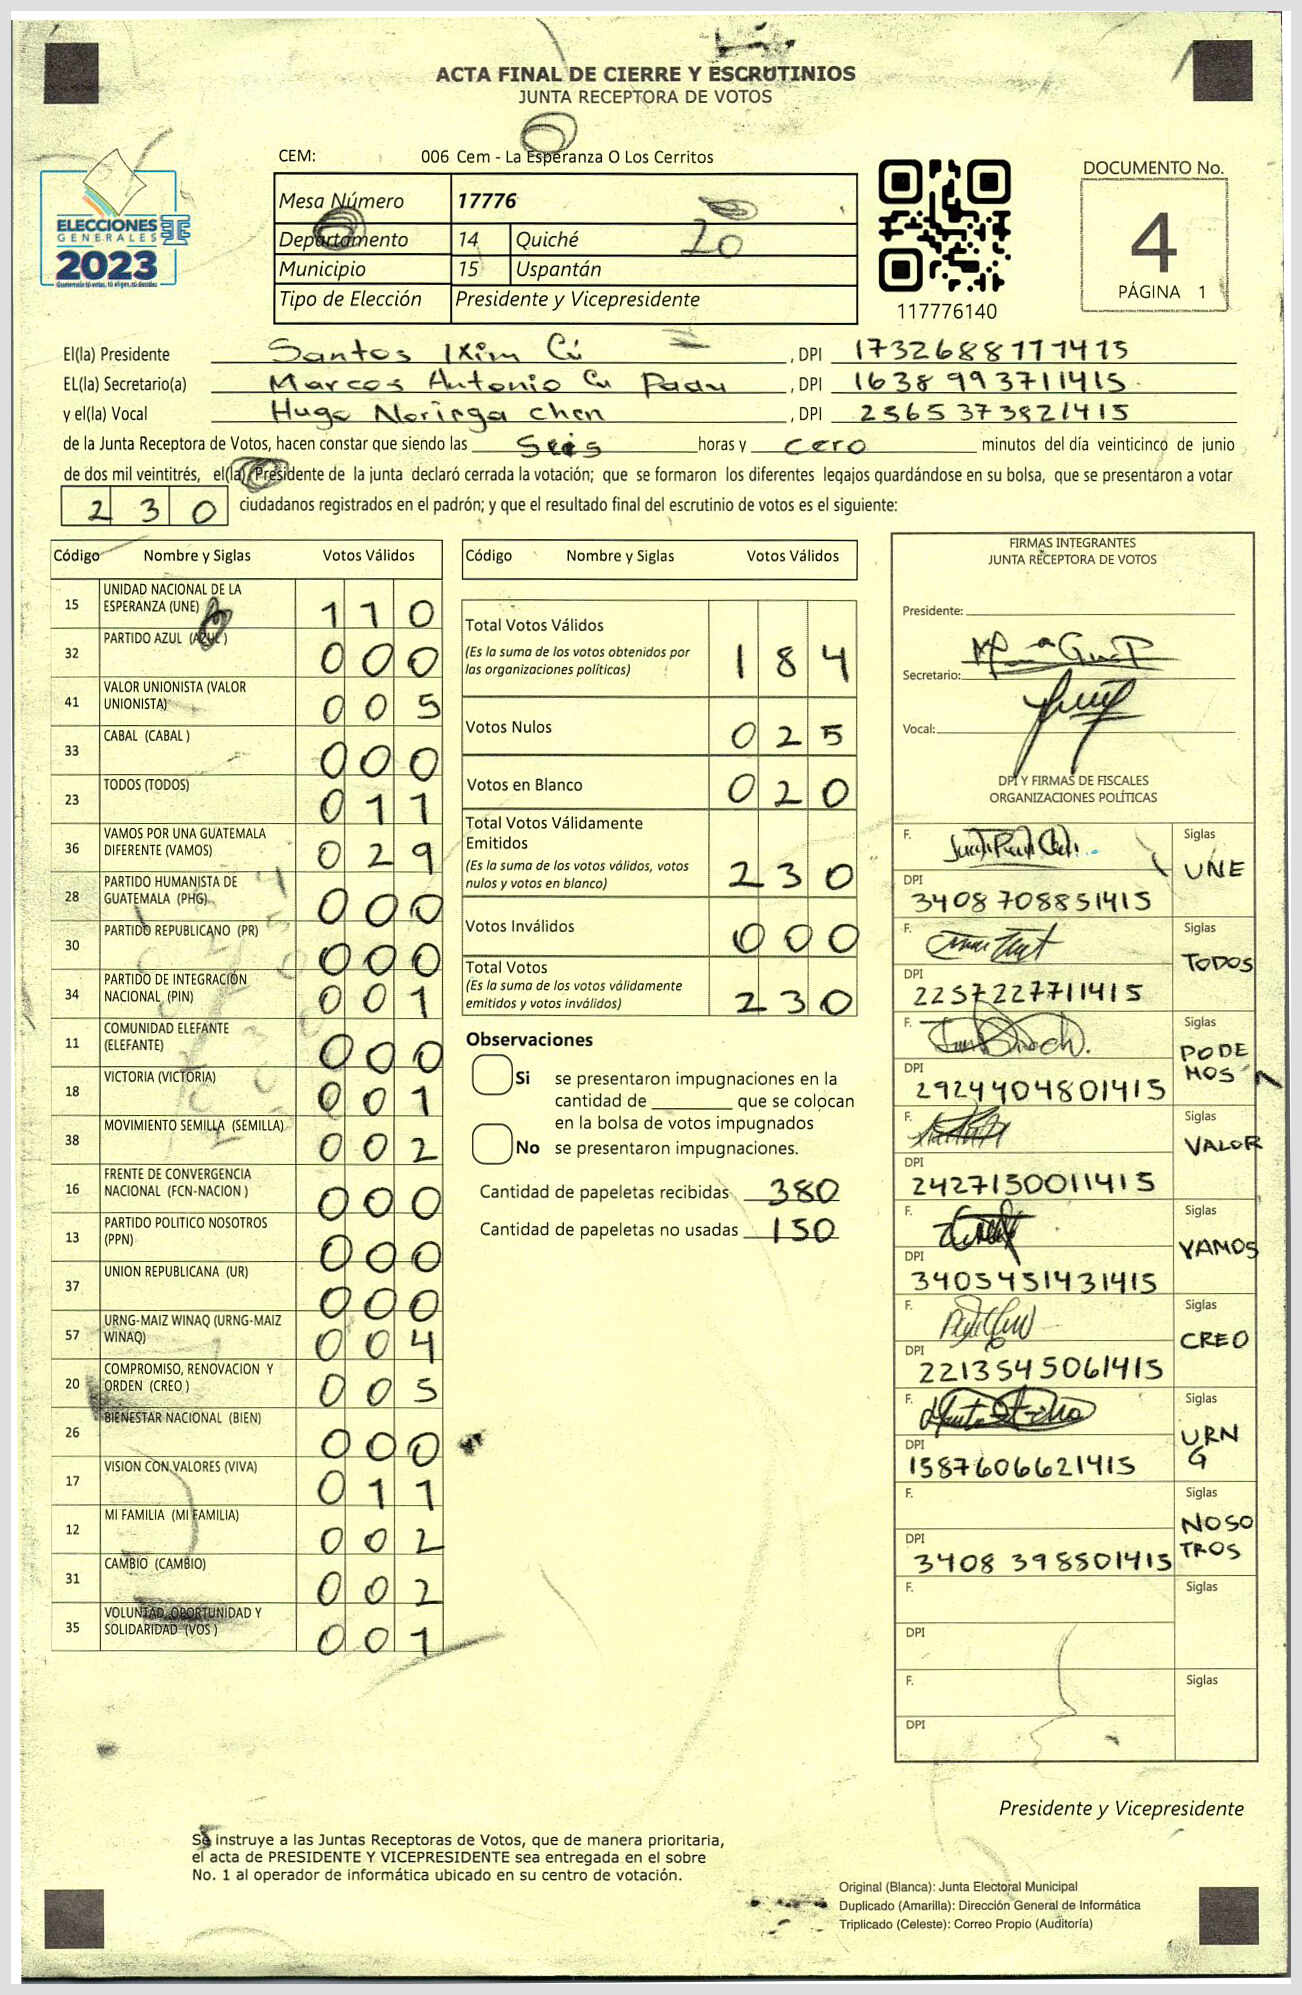 ACTA FINAL DE CIERRE Y ESCRUTINIOS
JUNTA RECEPTORA DE VOTOS
CEM: 006 Cem - La Esperanza O Los Cerritos
ELECCIONES
GENERALES
2023
Mesa Número 17776
Departamento 14 Quiché 20
Municipio 15 Uspantán
Tipo de Elección Presidente y Vicepresidente
117776140
DOCUMENTO No.
4
PÁGINA 1
El(la) Presidente Santos Ixim Cú , DPI
EL(la) Secretario(a) Marcos Antonio Cu , DPI 1638993711415
y el(la) Vocal Hugo Noriega chen , DPI 2565373821415
de la Junta Receptora de Votos, hacen constar que siendo las Seis horas y cero minutos del día veinticinco de junio
de dos mil veintitrés, el(la) Presidente de la junta declaró cerrada la votación; que se formaron los diferentes legajos guardándose en su bolsa, que se presentaron a votar
230 ciudadanos registrados en el padrón; y que el resultado final del escrutinio de votos es el siguiente:
Código Nombre y Siglas Votos Válidos
15 UNIDAD NACIONAL DE LA ESPERANZA (UNE) 110
32 PARTIDO AZUL (AZUL ) 000
41 VALOR UNIONISTA (VALOR UNIONISTA) 005
33 CABAL (CABAL ) 000
23 TODOS (TODOS) 011
36 VAMOS POR UNA GUATEMALA DIFERENTE (VAMOS) 029
28 PARTIDO HUMANISTA DE GUATEMALA (PHG) 000
30 PARTIDO REPUBLICANO (PR) 000
34 PARTIDO DE INTEGRACIÓN NACIONAL (PIN) 001
11 COMUNIDAD ELEFANTE (ELEFANTE) 000
18 VICTORIA (VICTORIA) 001
38 MOVIMIENTO SEMILLA (SEMILLA) 002
16 FRENTE DE CONVERGENCIA NACIONAL (FCN-NACION ) 000
13 PARTIDO POLITICO NOSOTROS (PPN) 000
37 UNION REPUBLICANA (UR) 000
57 URNG-MAIZ WINAQ (URNG-MAIZ WINAQ) 004
20 COMPROMISO, RENOVACION Y ORDEN (CREO ) 005
26 BIENESTAR NACIONAL (BIEN) 000
17 VISION CON VALORES (VIVA) 011
12 MI FAMILIA (MI FAMILIA) 002
31 CAMBIO (CAMBIO) 002
35 VOLUNTAD, OPORTUNIDAD Y SOLIDARIDAD (VOS ) 001
Código Nombre y Siglas Votos Válidos
Total Votos Válidos 184
(Es la suma de los votos obtenidos por
las organizaciones políticas)
Votos Nulos 025
Votos en Blanco 020
Total Votos Válidamente
Emitidos
(Es la suma de los votos válidos, votos
nulos y votos en blanco) 230
Votos Inválidos 000
Total Votos
(Es la suma de los votos válidamente
emitidos y votos inválidos) 230
Observaciones
Si se presentaron impugnaciones en la
cantidad de ________ que se colocan
en la bolsa de votos impugnados
No se presentaron impugnaciones.
Cantidad de papeletas recibidas 380
Cantidad de papeletas no usadas 150
FIRMAS INTEGRANTES
JUNTA RECEPTORA DE VOTOS
Presidente:
Secretario:
Vocal:
DPI Y FIRMAS DE FISCALES
ORGANIZACIONES POLÍTICAS
F. Siglas UNE
DPI 3408708851415
F. Siglas TODOS
DPI 2257227711415
F. Siglas PODEMOS
DPI 2924404801415
F. Siglas VALOR
DPI 2427150011415
F. Siglas VAMOS
DPI 3405451431415
F. Siglas CREO
DPI 2213545061415
F. Siglas URNG
DPI 1587606621415
F. Siglas NOSOTROS
DPI 3408398501415
F. Siglas
DPI
F. Siglas
DPI
Presidente y Vicepresidente
Se instruye a las Juntas Receptoras de Votos, que de manera prioritaria,
el acta de PRESIDENTE Y VICEPRESIDENTE sea entregada en el sobre
No. 1 al operador de informática ubicado en su centro de votación.
Original (Blanca): Junta Electoral Municipal
Duplicado (Amarilla): Dirección General de Informática
Triplicado (Celeste): Correo Propio (Auditoría)